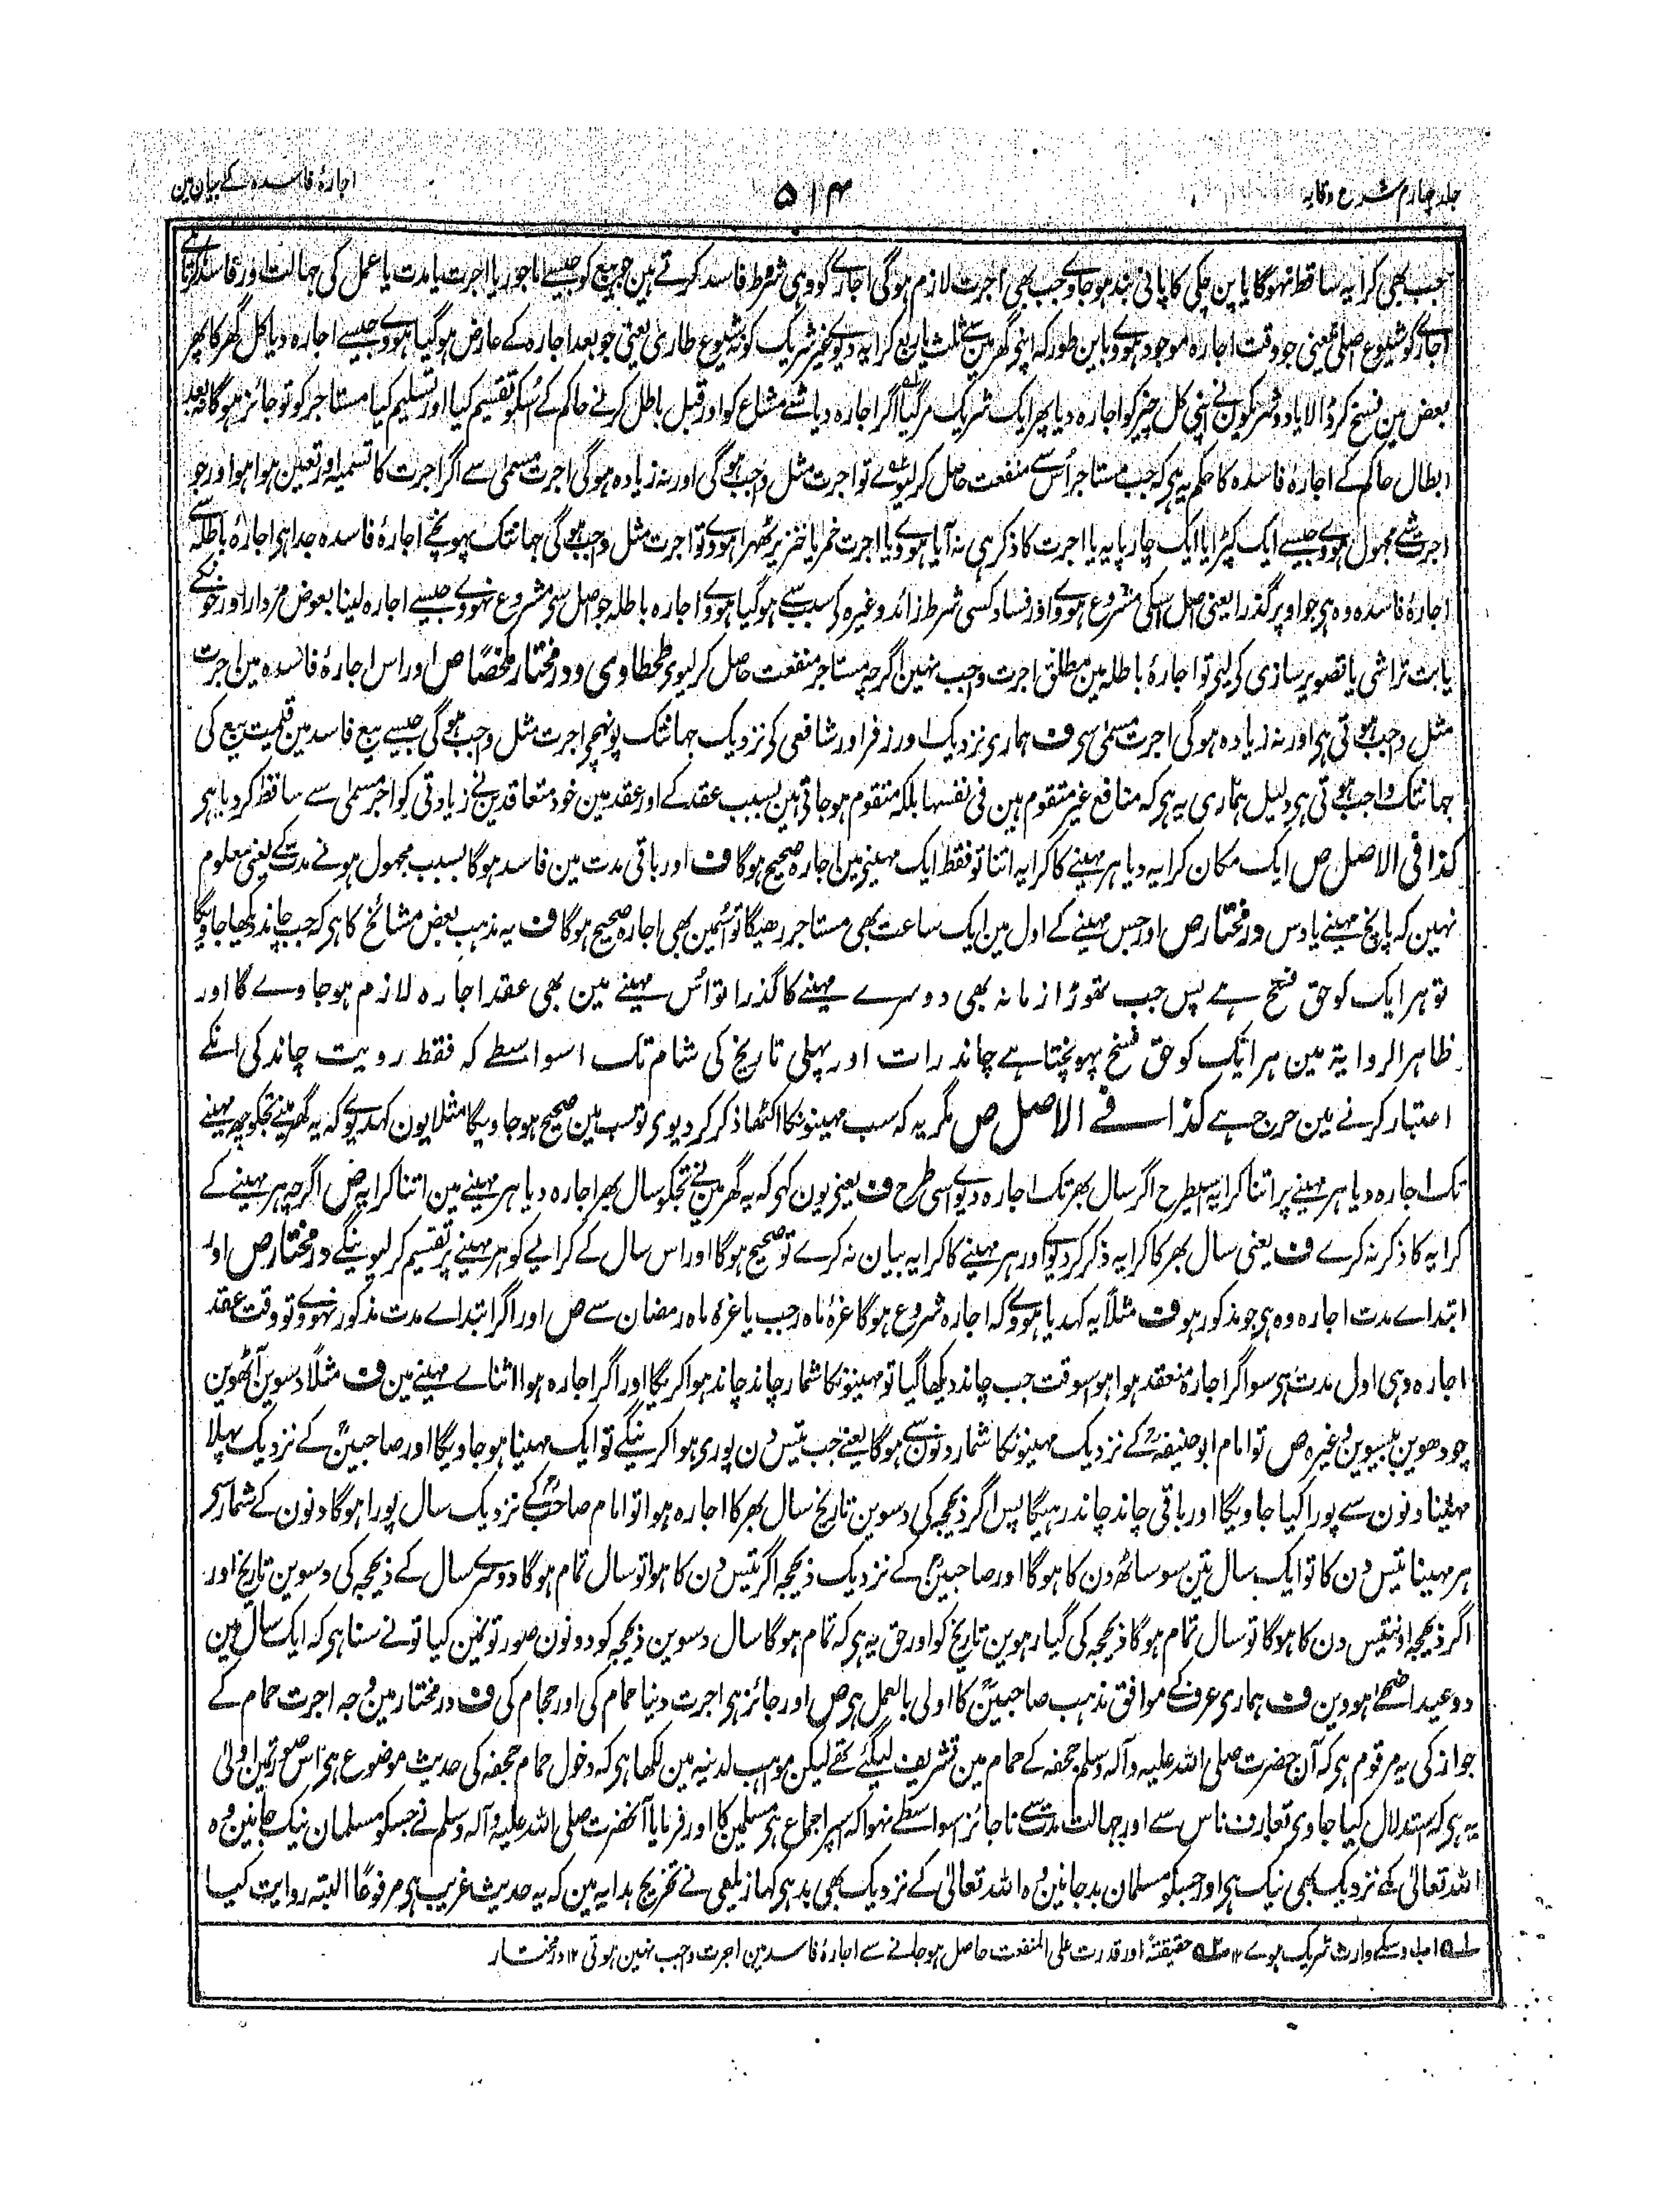 جلد چہارم شرح وقایہ
۵۱۴
اجارۂ فاسدہ کے بیان مین
جب بھی کرایہ ساقط نہوگا یا پن چکی کا پانی بند ہو جاوے جب بھی اجرت لازم ہوگی اجارے کو وہی شروط فاسد کرتے ہین جو بیع کو جیسے ماجور یا اجرت یا مدت یا عمل کی جہالت اور فاسد کرتا ہے
اجارے کو شیوع اصلی یعنی جو وقت اجارہ موجود ہووے باین طور کہ اپنے گھر مین سے ثلث یا ربع کرایہ دیوے غیر شریک کو نہ شیوع طاری یعنی جو بعد اجارہ کے عارض ہو گیا ہووے جیسے اجارہ دیا کل گھر کا پھر
بعض مین فسخ کر ڈالا یا دو شریکون نے اپنی کل چیز کو اجارہ دیا پھر ایک شریک مر گیا اگر اجارہ دیا شے مشاع کو اور قبل باطل کرنے حاکم کے اسکو تقسیم کیا اور تسلیم کیا مستاجر کو تو جائز ہوگا نہ بعد
ابطال حاکم کے اجارۂ فاسدہ کا حکم یہ ہی کہ جب مستاجر اُس سے منفعت حاصل کر لیوے تو اجرت مثل واجب ہوگی اور نہ زیادہ ہوگی اجرت مسمیٰ سے اگر اجرت کا تسمیہ اور تعین ہوا ہو اور جو
اجرت شے مجہول ہووے جیسے ایک کپڑا یا ایک چارپایہ یا اجرت کا ذکر ہی نہ آیا ہووے یا اجرت خمر یا خنزیر ٹھہرا ہووے تو اجرت مثل واجب ہوگی جہانتک پہونچے اجارۂ فاسدہ جدا ہی اجارۂ باطلہ سے
اجارۂ فاسدہ وہ ہی جو اوپر گذرا یعنی اصل اسکی مشروع ہووے اور فساد کسی شرط زائد وغیرہ کی سبب سے ہو گیا ہووے اجارہ باطلہ جو اصل سے مشروع نہووے جیسے اجارہ لینا بعوض مردار اور خون کے
یا بت تراشی یا تصویر سازی کے لیے تو اجارۂ باطلہ مین مطلق اجرت واجب نہین اگرچہ مستاجر منفعت حاصل کر لیوے طحطاوی و در مختار ملخصًا ص اور اس اجارۂ فاسدہ مین اجرت
مثل واجب ہوتی ہی اور نہ زیادہ ہوگی اجرت مسمیٰ سے ف ہماری نزدیک اور زفر اور شافعی کی نزدیک جہانتک پونہچے اجرت مثل واجب ہوگی جیسے بیع فاسد مین قیمت بیع کی
جہانتک واجب ہوتی ہی دلیل ہماری یہ ہی کہ منافع غیر متقوم ہین فی نفسہا بلکہ متقوم ہو جاتی ہین بسبب عقد کے اور عقد مین خود متعاقدین نے زیادتی کو اجر مسمیٰ سے ساقط کر دیا ہی
کذا فی الاصل ص ایک مکان کرایہ دیا ہر مہینے کا کرایہ اتنا تو فقط ایک مہینے مین اجارہ صحیح ہوگا ف اور باقی مدت مین فاسد ہوگا بسبب مجہول ہونے مدت کے یعنی معلوم
نہین کہ پانچ مہینے یا دس در مختار ص اور جس مہینے کے اول مین ایک ساعت بھی مستاجر رہیگا تو اُسمین بھی اجارہ صحیح ہوگا ف یہ مذہب بعض مشائخ کا ہی کہ جب چاند دکھا جاویگا
تو ہر ایک کو حق فسخ ہے پس جب تھوڑا زمانہ بھی دوسرے مہینے کا گذرا تو اُس مہینے مین بھی عقد اجارہ لازم ہو جاوے گا اور
ظاہر الروایۃ مین ہر ایک کو حق فسخ پہونچتا ہے چاند رات اور پہلی تاریخ کی شام تک اسواسطے کہ فقط رویت چاند کی انکے
اعتبار کرنے مین حرج ہے کذا فی الاصل ص مگر یہ کہ سب مہینونکا اکٹھا ذکر کر دیوی تو سب مین صحیح ہو جاویگا مثلا یون کہدیوے کہ یہ گھر مینے تجکو چھہ مہینے
تک اجارہ دیا ہر مہینے پر اتنا کرایہ اسیطرح اگر سال بھر تک اجارہ دیوے اسی طرح ف یعنی یون کہی کہ یہ گھر مین نے تجکو سال بھر اجارہ دیا ہر مہینے مین اتنا کرایہ ص اگرچہ ہر مہینے کے
کرایہ کا ذکر نہ کرے ف یعنی سال بھر کا کرایہ ذکر کر دیوے اور ہر مہینے کا کرایہ بیان نہ کرے تو صحیح ہوگا اور اس سال کے کرائے کو ہر مہینے پر تقسیم کر لیوینگے در مختار ص اور
ابتداے مدت اجارہ وہ ہی جو مذکور ہو ف مثلًا یہ کہدیا ہووے کہ اجارہ شروع ہوگا غرۂ ماہ رجب یا غرۂ ماہ رمضان سے ص اور اگر ابتداے مدت مذکور نہووے تو وقت عقد
اجارہ وہی اول مدت ہی سو اگر اجارہ منعقد ہوا ہو اسوقت جب چاند دیکھا گیا تو مہینونکا شمار چاند چاند ہوا کریگا اور اگر اجارہ ہوا اثناے مہینے مین ف مثلًا دسوین آٹھوین
چودھوین بیسوین وغیرہ ص تو امام ابو حنیفہؒ کے نزدیک مہینونکا شمار دنون سے ہوگا یعنے جب تیس دن پوری ہوا کرینگے تو ایک مہینا ہو جاویگا اور صاحبینؒ کے نزدیک پہلا
مہینا دنون سے پورا کیا جاویگا اور باقی چاند چاند رہیگا پس اگر ذیحجہ کی دسوین تاریخ سال بھر کا اجارہ ہوا تو امام صاحبؒ کے نزدیک سال پورا ہوگا دنون کے شمار سے
ہر مہینا تیس دن کا تو ایک سال تین سو ساٹھ دن کا ہوگا اور صاحبینؒ کے نزدیک ذیحجہ اگر تیس دن کا ہوا تو سال تمام ہوگا دوسرے سال کے ذیحجہ کی دسوین تاریخ اور
اگر ذیحجہ اونتیس دن کا ہوگا تو سال تمام ہوگا ذیحجہ کی گیارہوین تاریخ کو اور حق یہ ہی کہ تمام ہوگا سال دسوین ذیحجہ کو دونون صورتونمین کیا تو نے سنا ہی کہ ایک سال مین
دو عید اضحےٰ ہووین ف ہماری عرف کے موافق مذہب صاحبینؒ کا اولی بالعمل ہی ص اور جائز ہی اجرت دینا حمام کی اور حجام کی ف در مختار مین وجہ اجرت حمام کے
جواز کی یہ مرقوم ہی کہ آن حضرت صلی اللہ علیہ وآلہ وسلم جحفہ کے حمام مین تشریف لیگئے تھے لیکن مواہب لدنیہ مین لکھا ہی کہ دخول حمام جحفہ کی حدیث موضوع ہی اس صورتمین اولیٰ
یہ ہی کہ استدلال کیا جاوی تعارف ناس سے اور جہالت مدت سے ناجائز اسواسطے نہوا کہ اسپر اجماع ہی مسلمین کا اور فرمایا آنحضرت صلی اللہ علیہ وآلہ وسلم نے جسکو مسلمان نیک جانین وہ
اللہ تعالیٰ کے نزدیک بھی نیک ہی اور جسکو مسلمان بد جانین وہ اللہ تعالیٰ کے نزدیک بھی بد ہی کہا زیلعی نے تخریج ہدایہ مین کہ یہ حدیث غریب ہی مرفوعًا البتہ روایت کیا
لہ اب اوسکے وارث شریک ہوے ۱۲ سلہ حقیقتہً اور قدرت علی المنفعت حاصل ہو جانے سے اجارۂ فاسد مین اجرت واجب نہین ہوتی ۱۲ در مختار